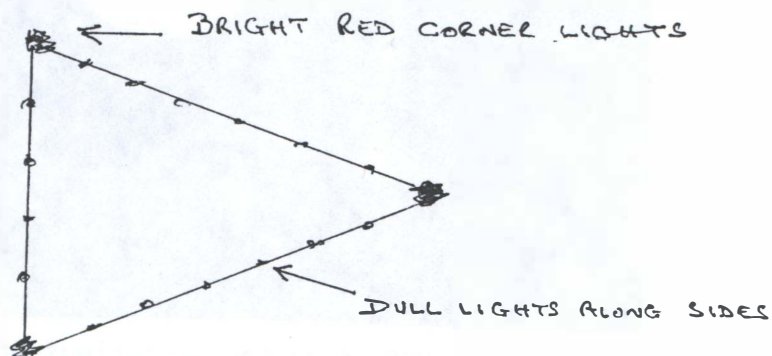 BRIGHT RED CORNER LIGHTS
DULL LIGHTS ALONG SIDES